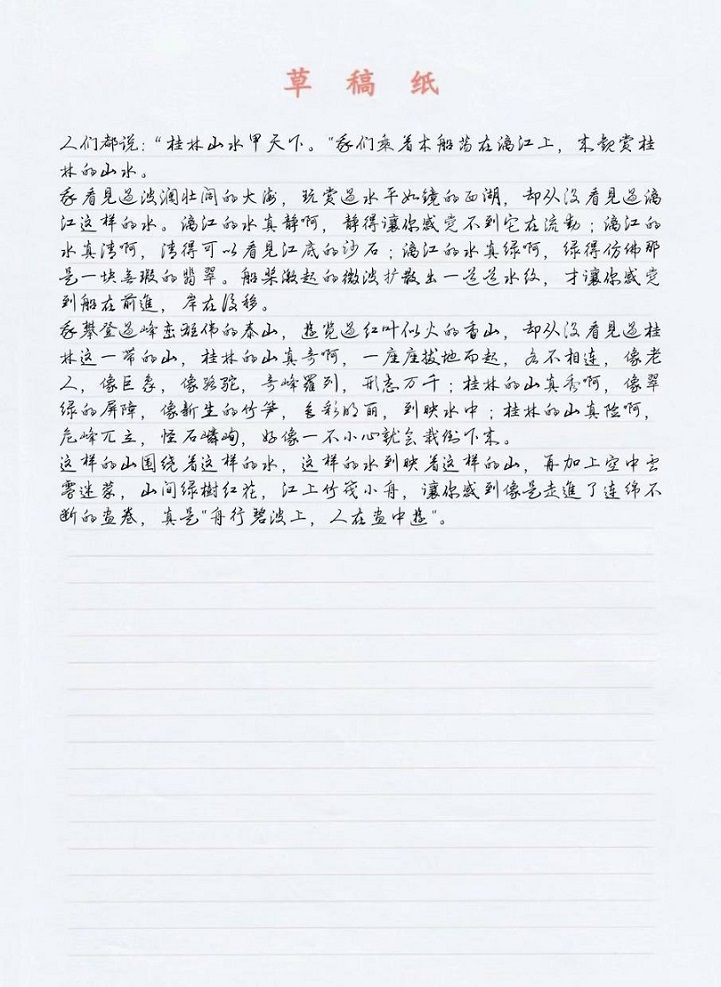 草 稿 纸
人们都说：“桂林山水甲天下。”我们乘着木船荡在漓江上，来观赏桂
林的山水。
我看見过波澜壮阔的大海，玩赏过水平如镜的西湖，却从没看見过漓
江这样的水。漓江的水真静啊，静得讓你感觉不到它在流動；漓江的
水真清啊，清得可以看見江底的沙石；漓江的水真绿啊，绿得仿佛那
是一块無瑕的翡翠。船桨激起的微波扩散出一道道水纹，才讓你感觉
到船在前進，岸在後移。
我攀登过峰峦雄伟的泰山，遊览过红叶似火的香山，却从没看見过桂
林这一带的山，桂林的山真奇啊，一座座拔地而起，各不相连，像老
人，像巨象，像骆驼，奇峰羅列，形态万千；桂林的山真秀啊，像翠
绿的屏障，像新生的竹笋，色彩明丽，到映水中；桂林的山真险啊，
危峰兀立，怪石嶙峋，好像一不小心就会栽倒下来。
这样的山围绕着这样的水，这样的水到映着这样的山，再加上空中雲
雾迷蒙，山间绿樹红花，江上竹筏小舟，讓你感到像是走進了连绵不
断的画卷，真是“舟行碧波上，人在画中遊”。